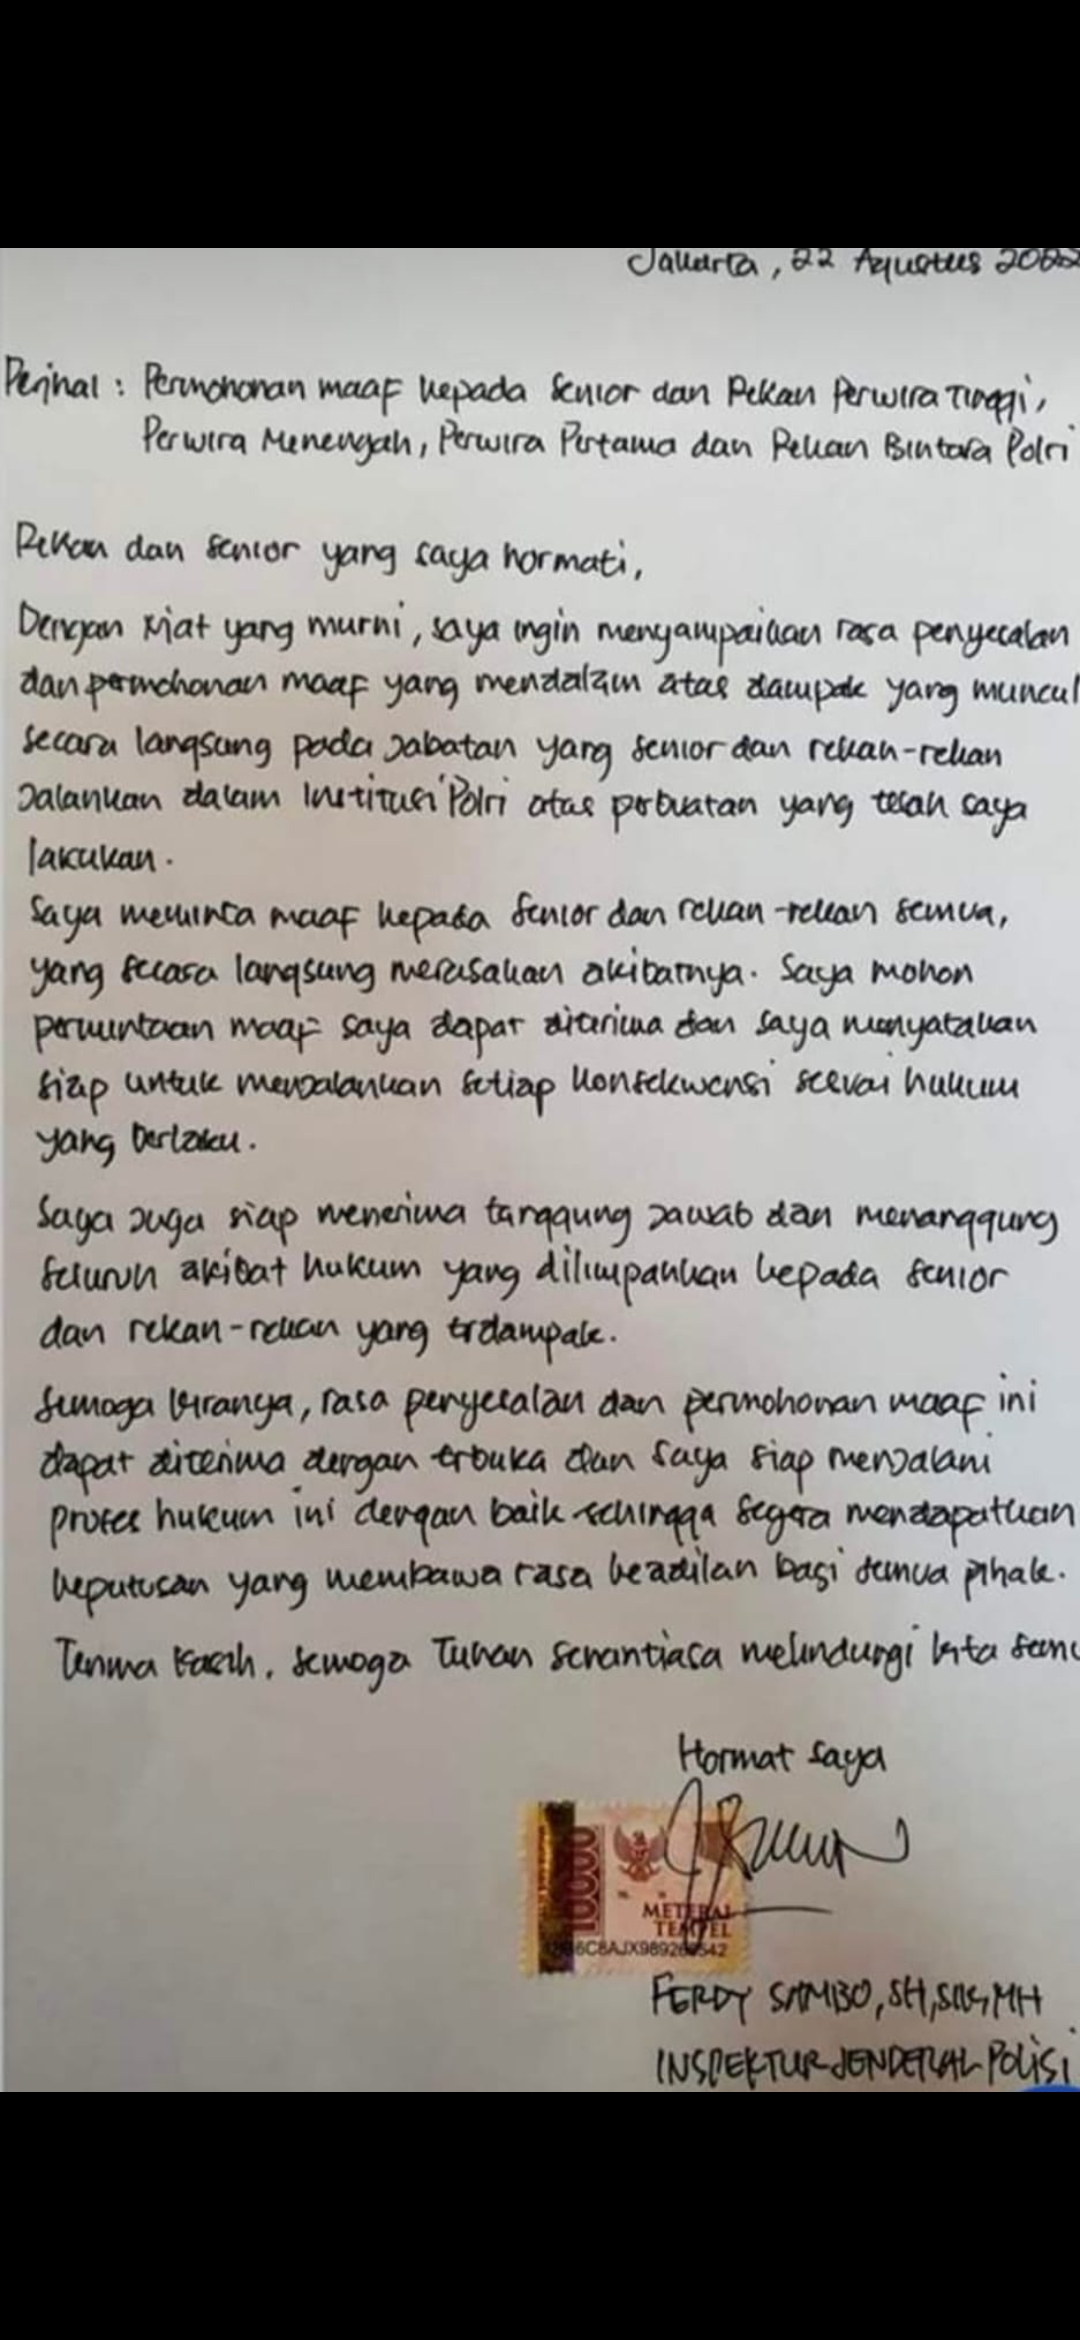 Jakarta, 22 Agustus 2022
Perihal : Permohonan maaf kepada Senior dan Rekan Perwira Tinggi,
Perwira Menengah, Perwira Pertama dan Rekan Bintara Polri
Rekan dan senior yang saya hormati,
Dengan niat yang murni, saya ingin menyampaikan rasa penyesalan
dan permohonan maaf yang mendalam atas dampak yang muncul
secara langsung pada jabatan yang senior dan rekan-rekan
jalankan dalam institusi Polri atas perbuatan yang telah saya
lakukan.
Saya meminta maaf kepada senior dan rekan-rekan semua,
yang secara langsung merasakan akibatnya. Saya mohon
permintaan maaf saya dapat diterima dan saya menyatakan
siap untuk menjalankan setiap konsekwensi sesuai hukum
yang berlaku.
Saya juga siap menerima tanggung jawab dan menanggung
seluruh akibat hukum yang dilimpahkan kepada senior
dan rekan-rekan yang terdampak.
Semoga kiranya, rasa penyesalan dan permohonan maaf ini
dapat diterima dengan terbuka dan saya siap menjalani
proses hukum ini dengan baik sehingga segera mendapatkan
keputusan yang membawa rasa keadilan bagi semua pihak.
Terima kasih, semoga Tuhan senantiasa melindungi kita sem
Hormat saya
10000
METERAI
TEMPEL
FERDY SAMBO, SH, SIK, MH
INSPEKTUR JENDERAL POLISI